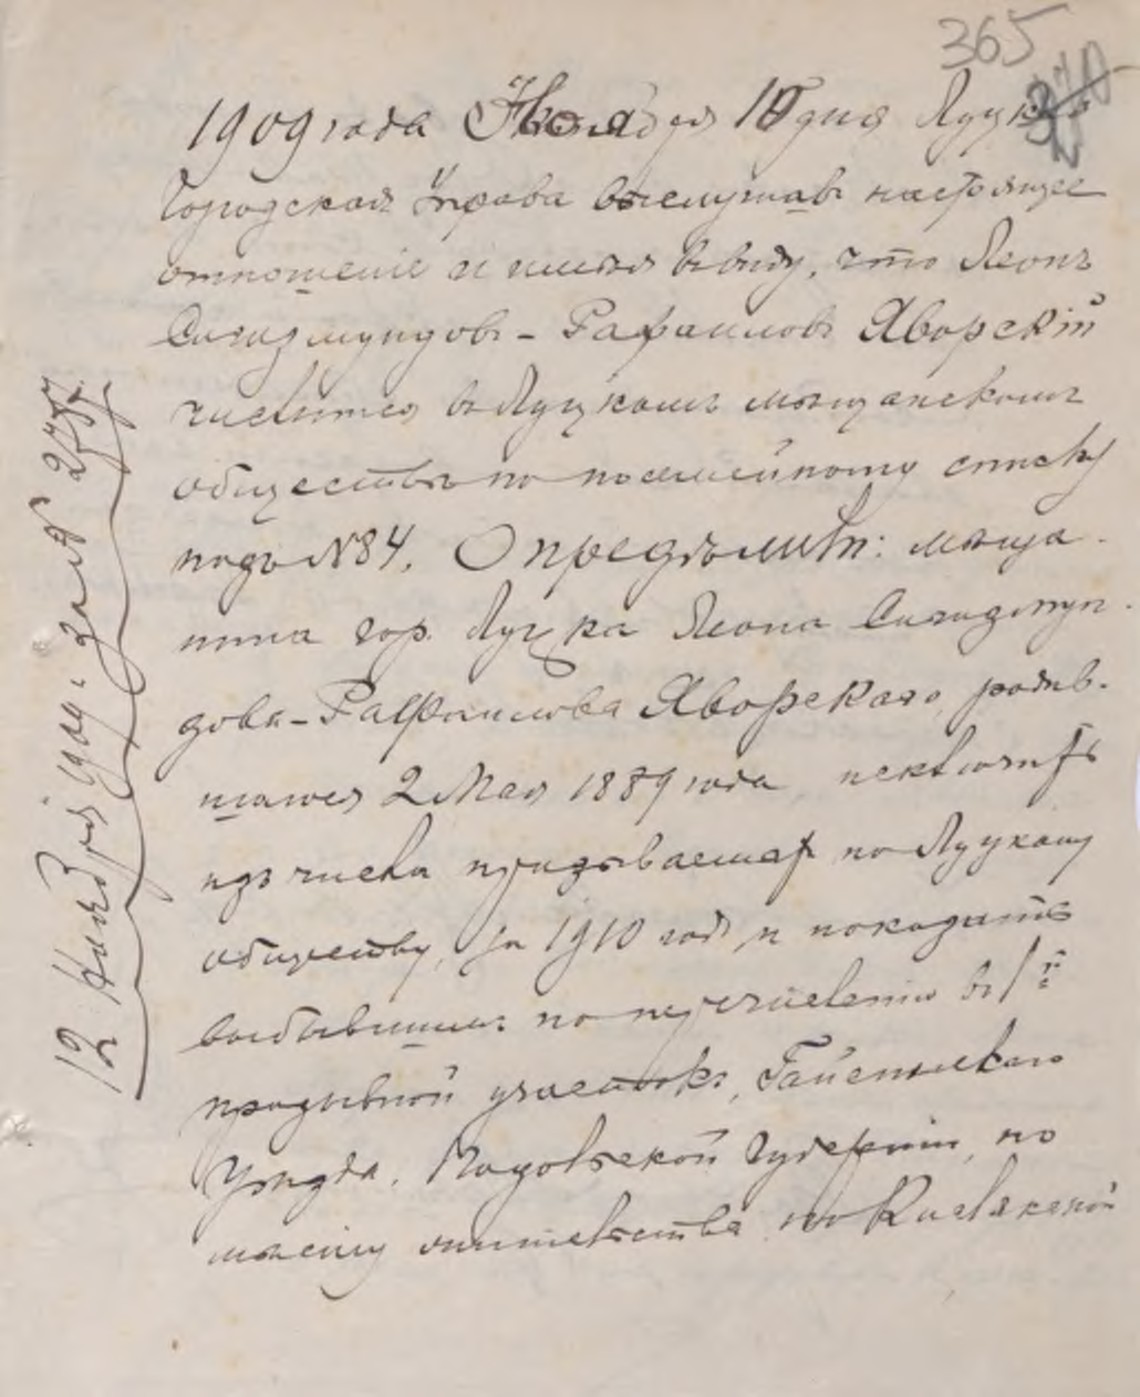 365
370
1909 года Ноября 10 дня Луцкая
Городская Управа выслушавъ настоящее
отношеніе и имѣя въ виду, что Леонъ
Сигизмундовъ-Рафаиловъ Яворскій
числится въ Луцкомъ мѣщанскомъ
обществѣ по посемейному списку
подъ №84, Опредѣлили: мѣща-
нина гор. Луцка Леона Сигизмун-
дова-Рафаилова Яворскаго, родив-
шагося 2 Мая 1889 года исключить
изъ числа призываемыхъ по Луцкому
обществу, за 1910 годъ и показать
выбывшимъ по перечисленію въ 1й
призывной участокъ, Гайсинскаго
Уѣзда, Подольской губерніи, по
мѣсту жительства по
12 Ноября 1909 г. за №